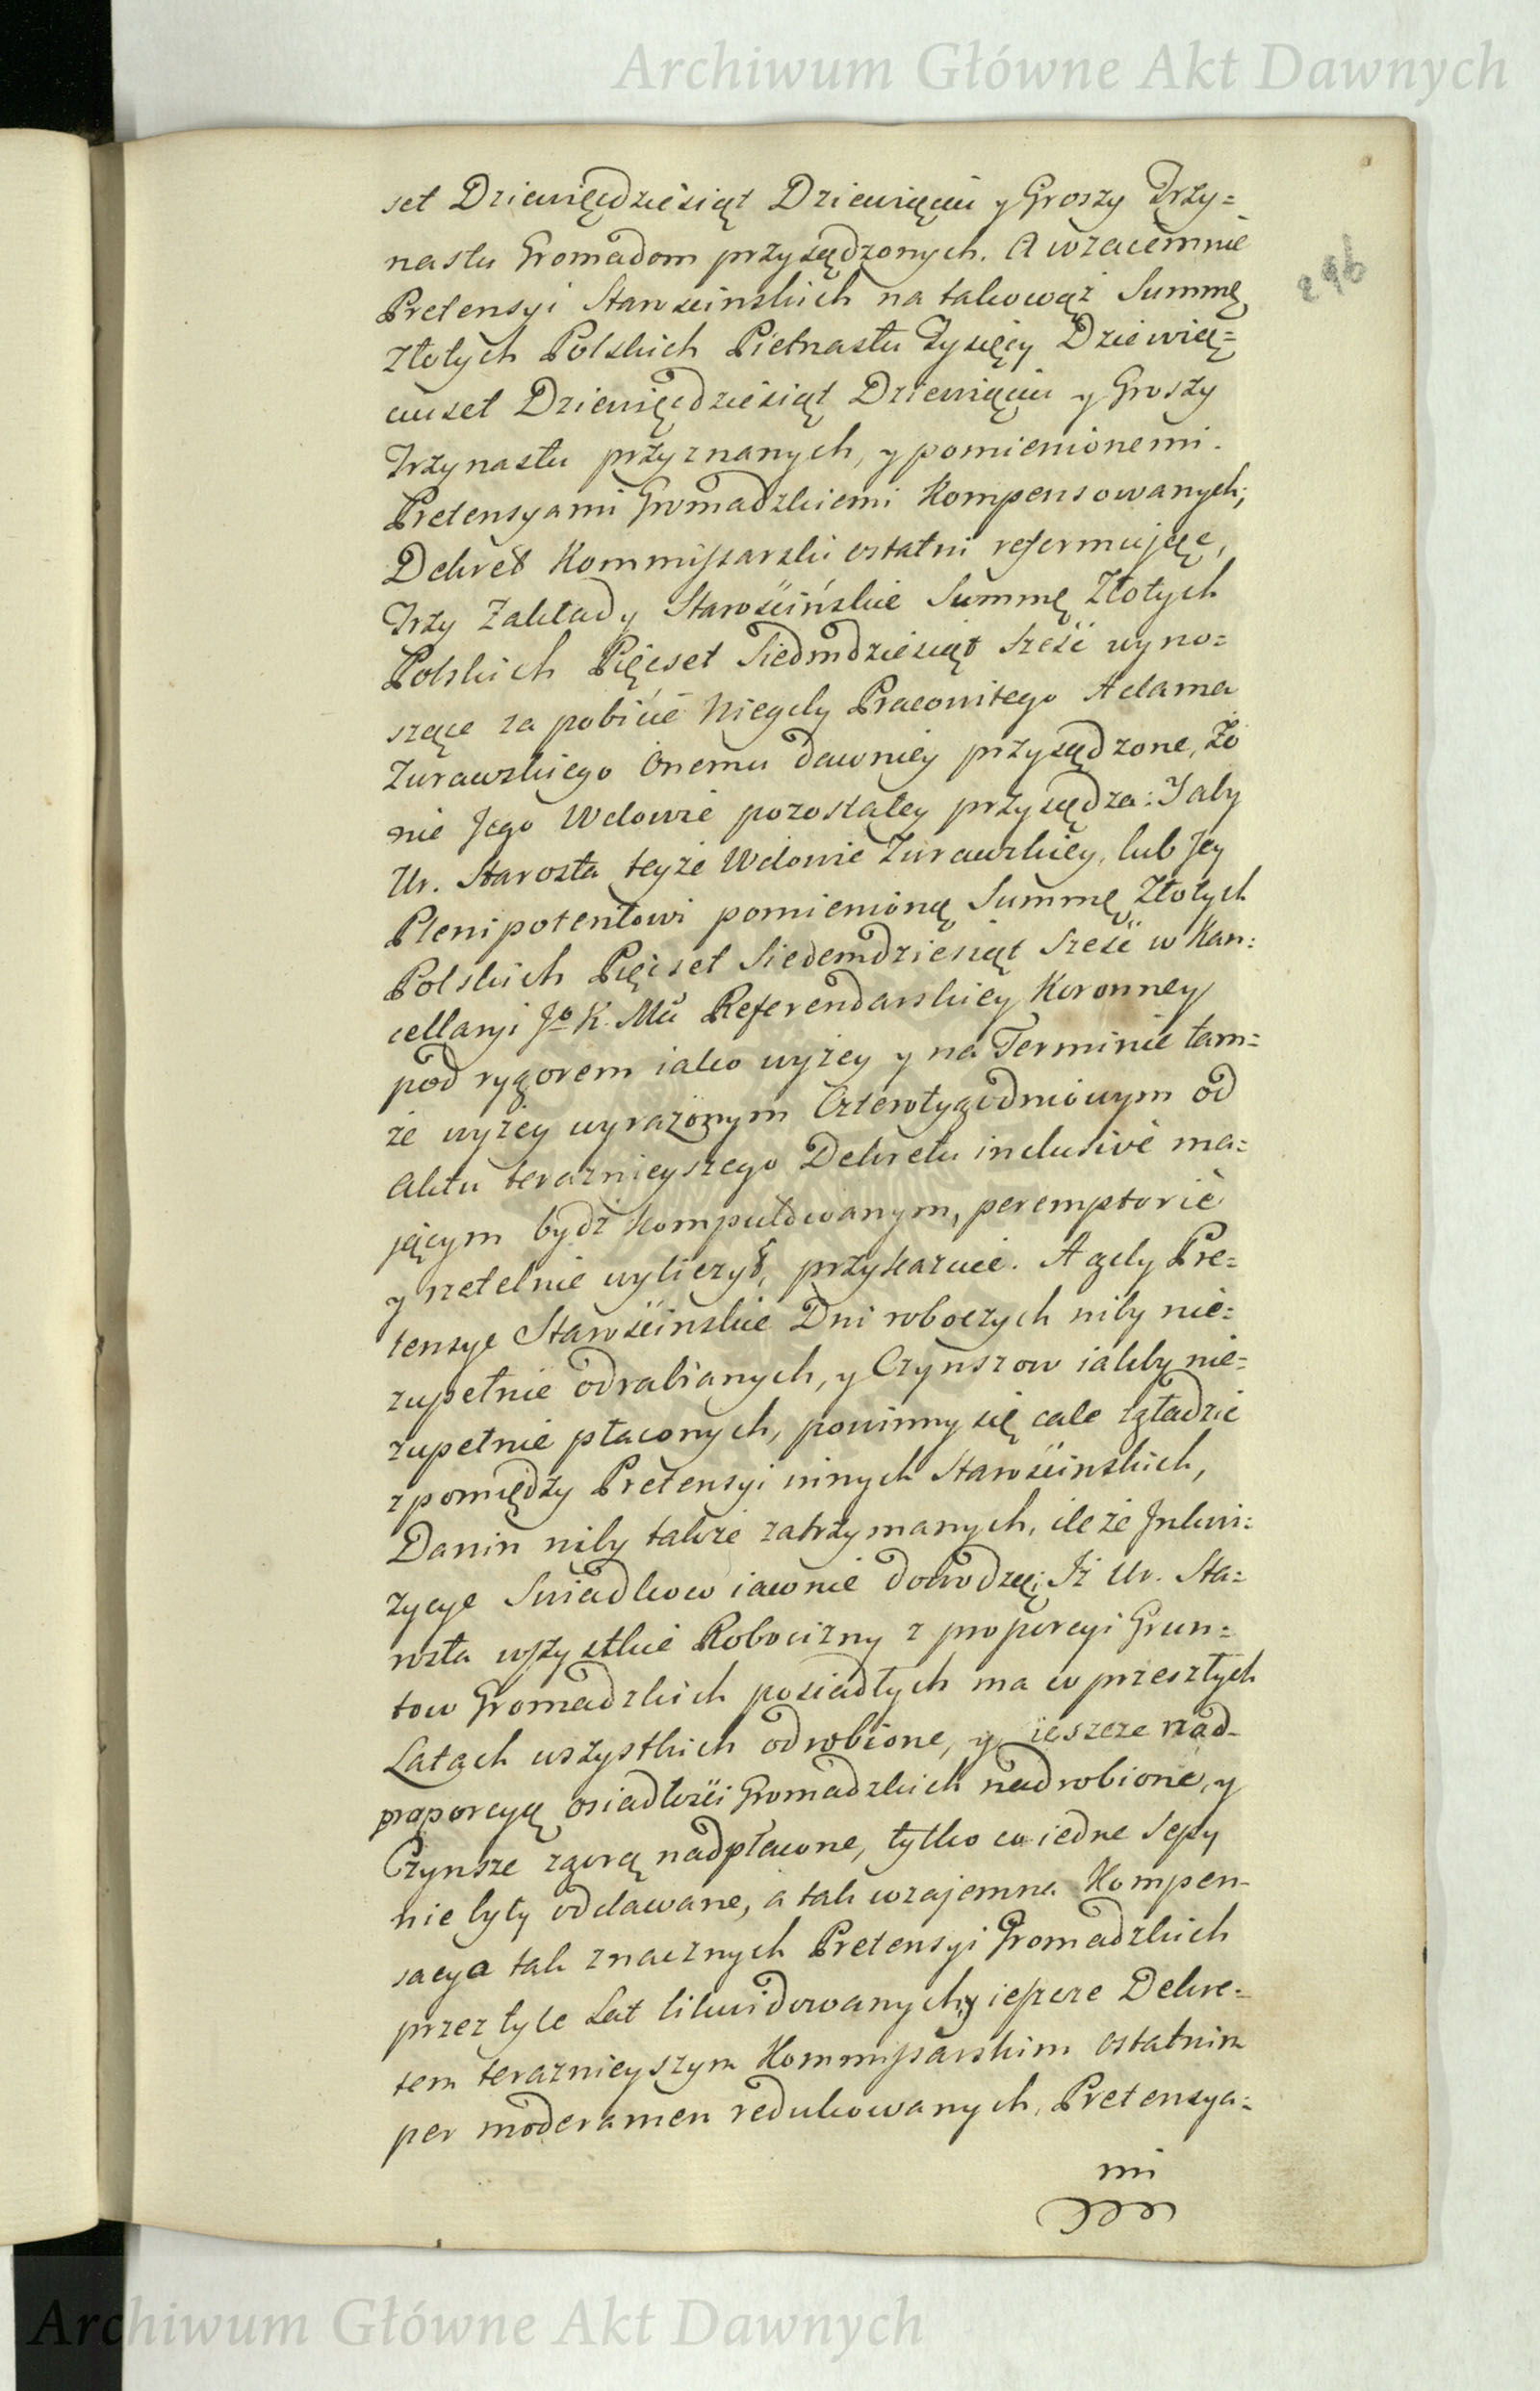 Archiwum Główne Akt Dawnych
set Dziewięćdziesiąt Dziewięciu y Groszy Trzy=
nastu Gromadom przysądzonych. A wzaiemnie
Pretensyi Starościnskich na takowąż Summę
Złotych Polskich Pietnastu Tysięcy Dziewię=
ciuset Dziewięćdziesiąt Dziewięciu y Groszy
Trzynastu przyznanych, y pomienionemi
Pretensyami Gromadzkiemi Kompensowanych;
Dekret Kommissarski ostatni reformujęc,
Trzy Zakłady Starościńskie Summę Złotych
Polskich Pięćset Siedmdziesiąt Sześć wyno=
szące za pobicie Niegdy Pracowitego Adama
Zurawskiego Onemu dawniey przysądzone, Żo
nie Jego Wdowie pozostałey przysądza: J aby
Ur. Starosta teyże Wdowie Zurawskiey, lub Jey
Plenipotentowi pomienioną Summę Złotych
Polskich Pięćset Siedemdziesiąt Sześć w Kan=
cellaryi Jo K. Mci Referendarskiey Koronney
pod rygorem iako wyżey y na Terminie tam=
że wyżey wyrażonym Czterotygodniowym od
Aktu teraznieyszego Dekretu inclusive ma=
jącym bydź komputowanym, peremptorie
y rzetelnie wyliczył, przykazuie. A gdy Pre=
tensye Starościnskie Dni roboczych niby nie=
zupełnie odrabianych, y Czynszow iakby nie=
zupełnie płaconych, powinny się cale zgładzić
z pomiędzy Pretensyi innych Starościnskich,
Danin niby także zatrzymanych, ile że Inkwi=
zycye Swiadkow iawnie dowodzą; Iż Ur. Sta=
rosta wszystkie Robocizny z proporcyi Grun=
tow Gromadzkich posiadłych ma w przeszłych
Latach wszystkich odrobione, y ieszcze nad-
proporcyą osiadłości Gromadzkich nadrobione, y
Czynsze zgorą nadpłacone, tylko co iedne Sepy
nie były oddawane, a tak wzajemna Kompen-
sacya tak znacznych Pretensyi Gromadzkich
przez tyle Lat likwidowanych, y ieszcze Dekre-
tem teraznieyszym Kommissarskim ostatnim
per moderamen redukowanych, Pretensya=
mi
296
Archiwum Główne Akt Dawnych